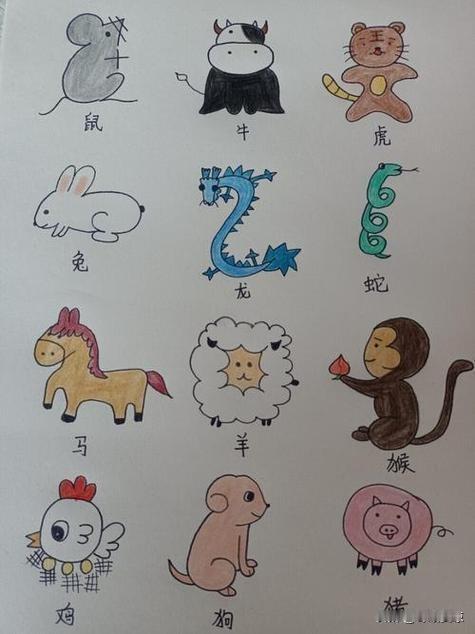 鼠 牛 虎
王
兔 龙 蛇
马 羊 猴
鸡 狗 猪